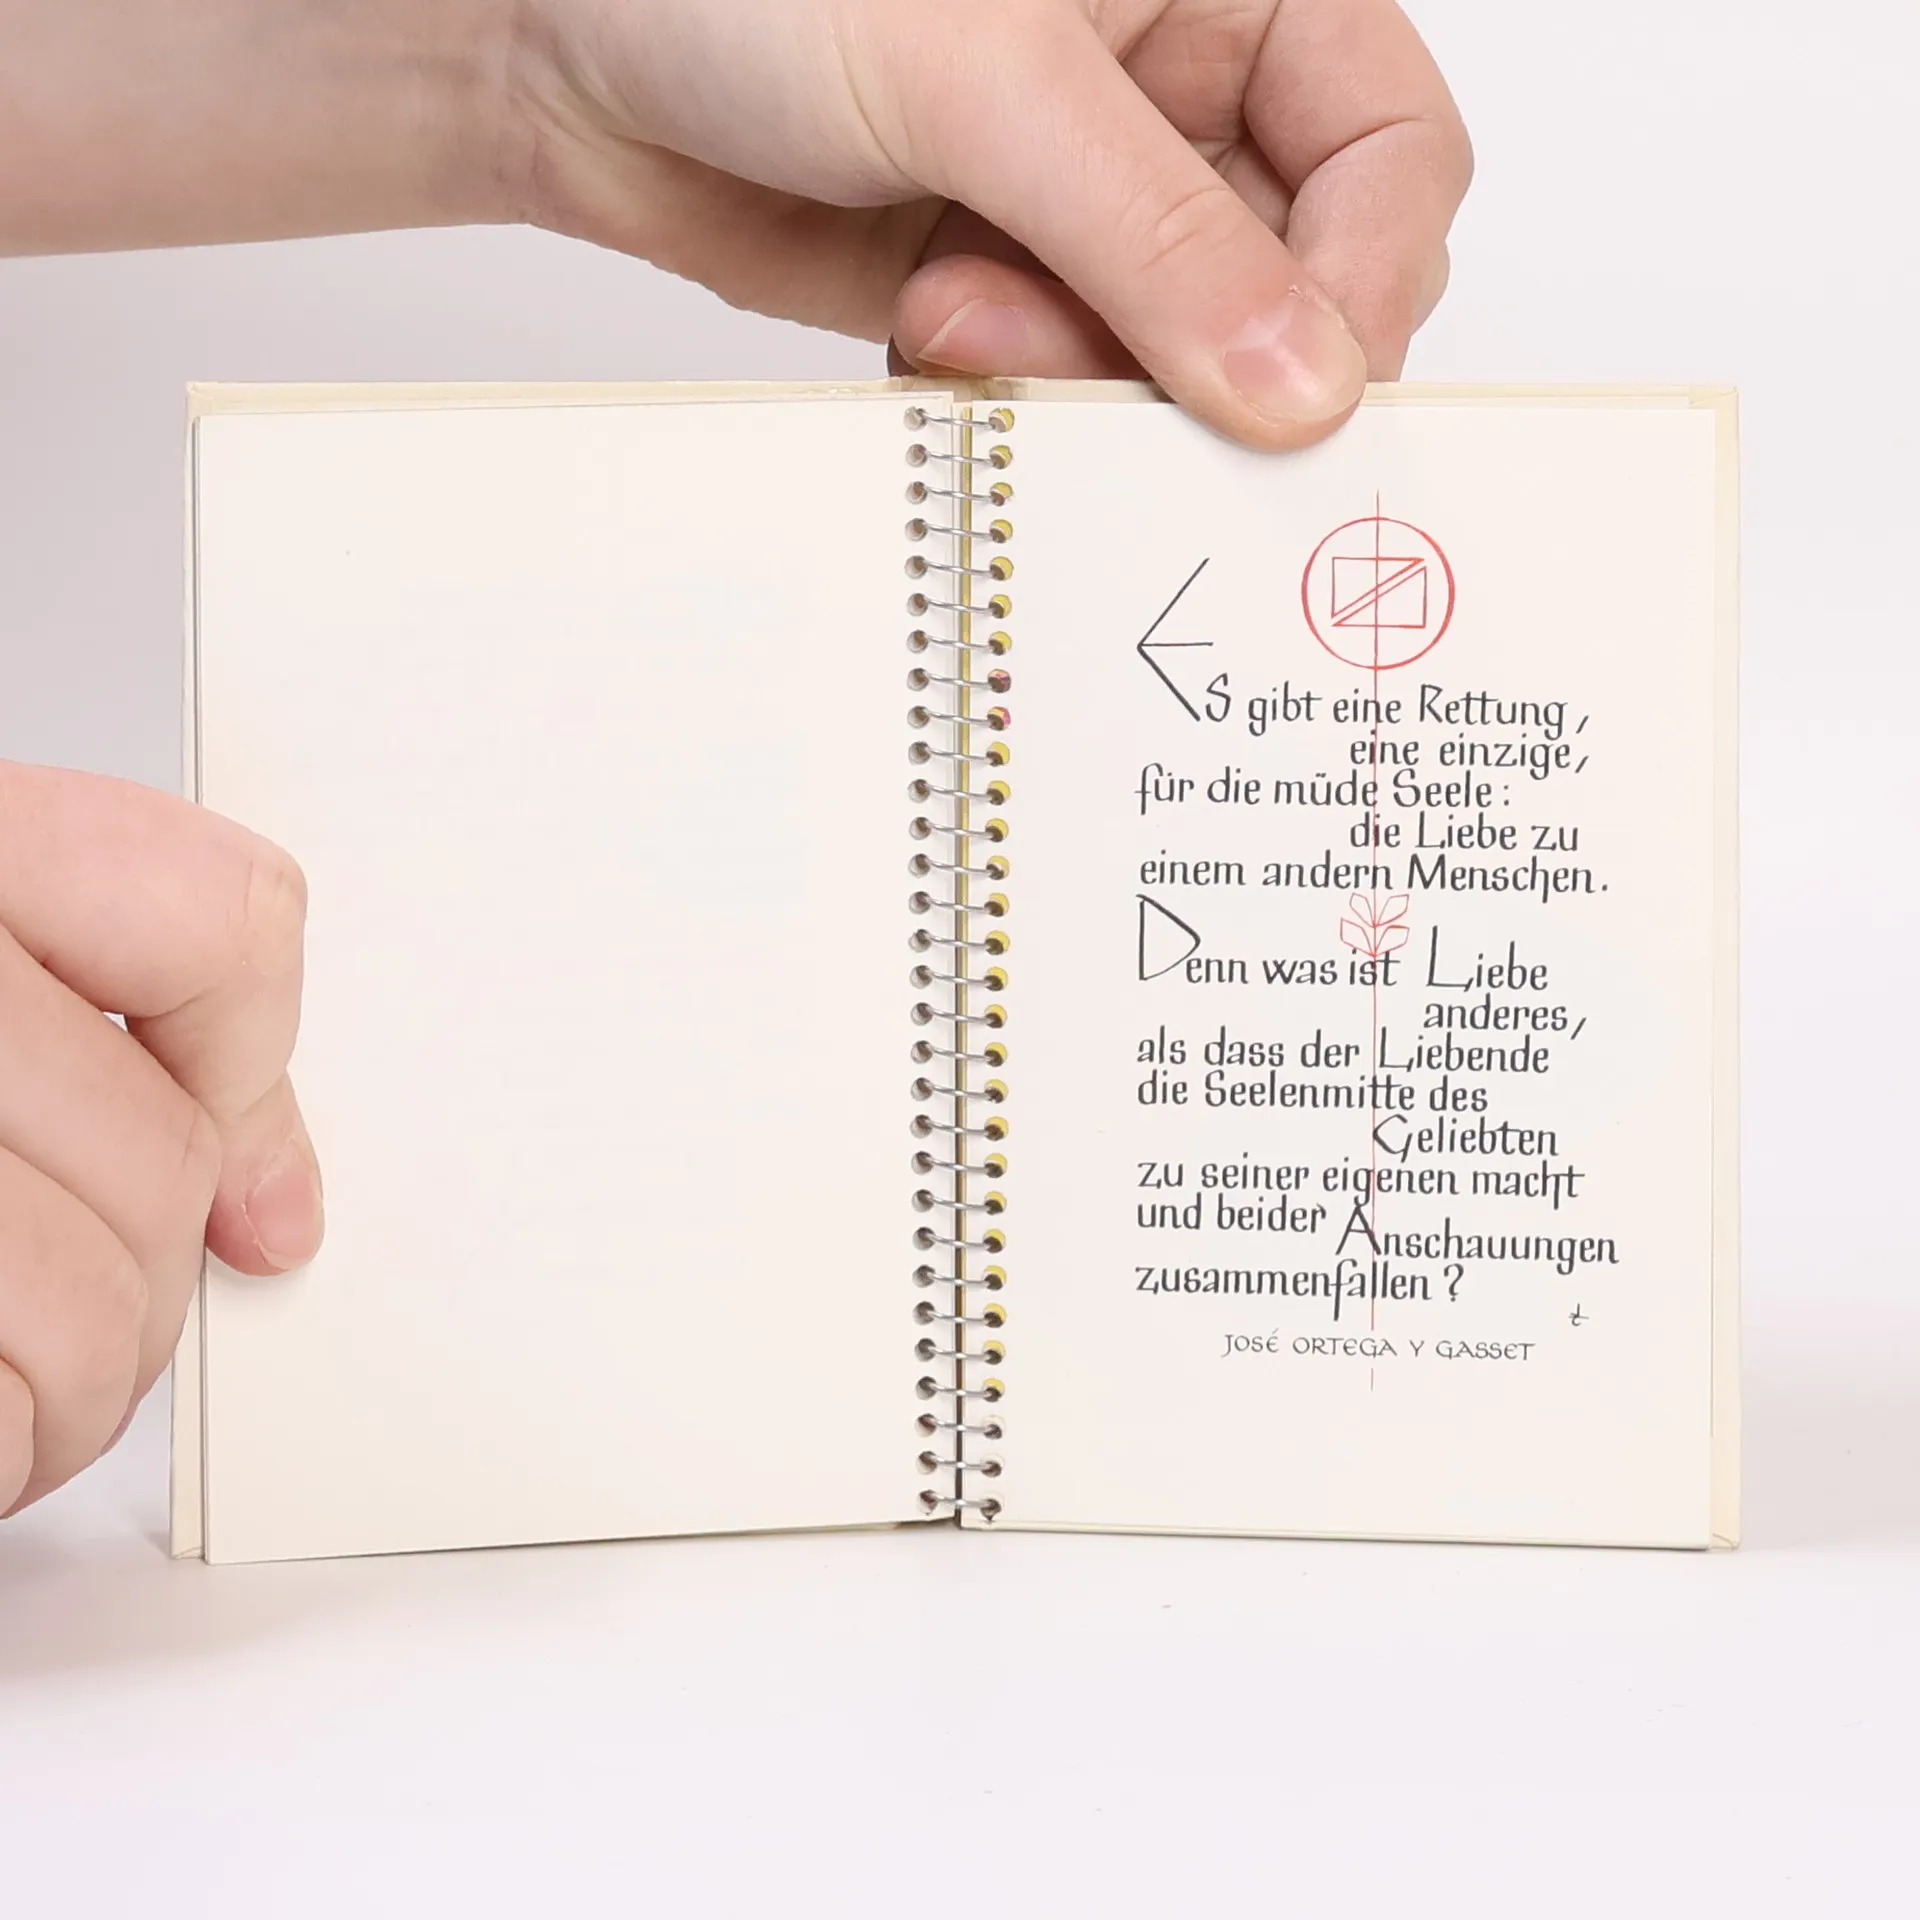 Es gibt eine Rettung,
eine einzige,
für die müde Seele:
die Liebe zu
einem andern Menschen.
Denn was ist Liebe
anderes,
als dass der Liebende
die Seelenmitte des
Geliebten
zu seiner eigenen macht
und beider Anschauungen
zusammenfallen?
JOSÉ ORTEGA Y GASSET